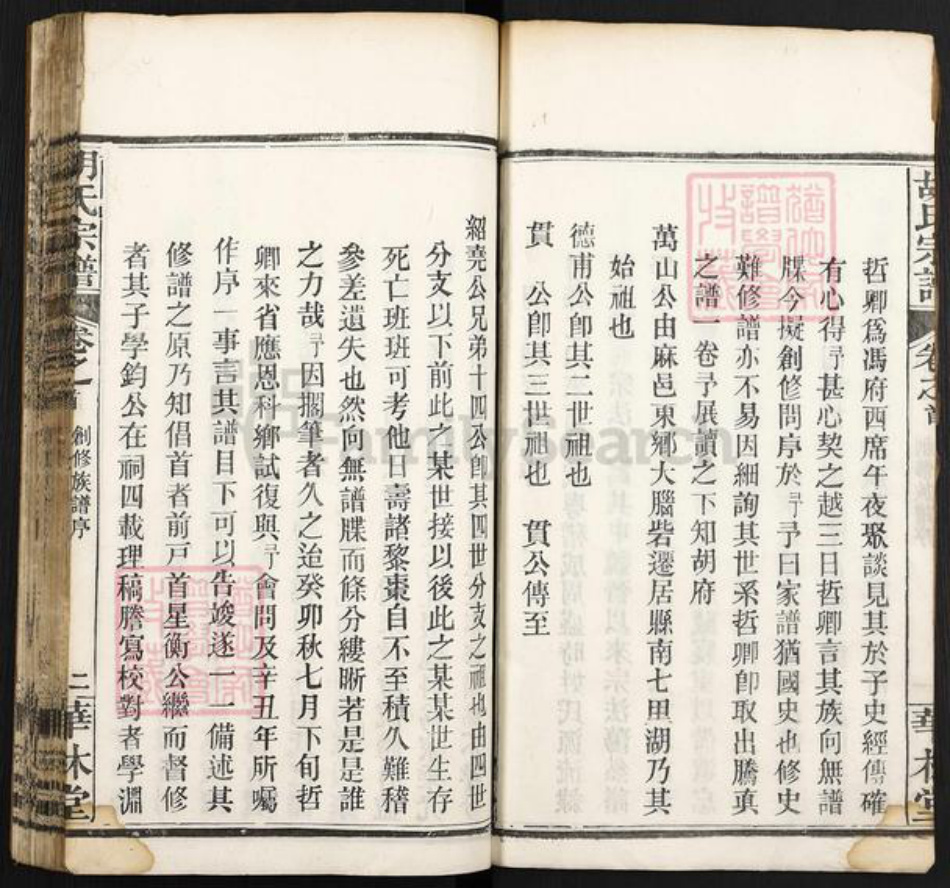 胡氏宗譜
卷之首
華林堂
哲卿爲馮府西席午夜聚談見其於子史經傳確
有心得予甚心契之越三日哲卿言其族向無譜
牒今擬創修問序於予予曰家譜猶國史也修史
難修譜亦不易因細詢其世系哲卿卽取出騰眞
之譜一卷予展讀之下知胡府
萬山公由麻邑東鄉大腦砦遷居縣南七里湖乃其
始祖也
德甫公卽其二世祖也
貫 公卽其三世祖也 貫公傳至
紹堯公兄弟十四公卽其四世分支之祖也由四世
分支以下前此之某世接以後此之某某世生存
死亡班班可考他日壽諸黎棗自不至積久難稽
參差遺失也然向無譜牒而條分縷晰若是是誰
之力哉予因擱筆者久之迨癸卯秋七月下旬哲
卿來省應恩科鄉試復與予會問及辛丑年所囑
作序一事言其譜目下可以告竣遂一一備述其
修譜之原乃知倡首者前戸首星衡公繼而督修
者其子學鈞公在祠四載理稿謄寫校對者學淵
胡氏宗譜
卷之首
創修族譜序
二
華林堂
FamilySearch